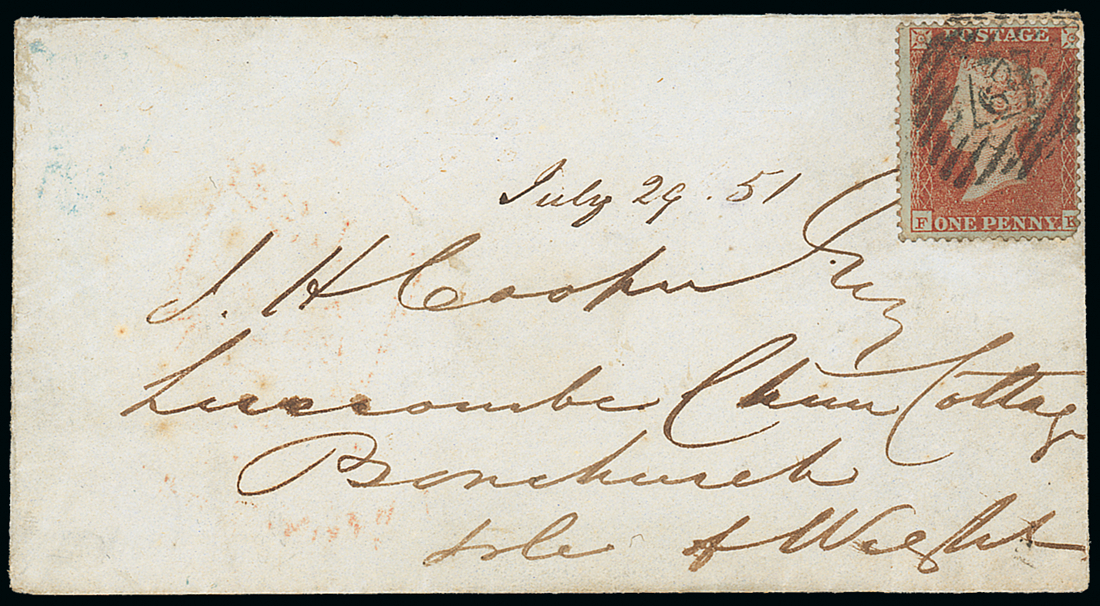 POSTAGE
F ONE PENNY K
July 29. 51
J. H Cooper Esq
Luccombe Chine Cottage
Bonchurch
Isle of Wight